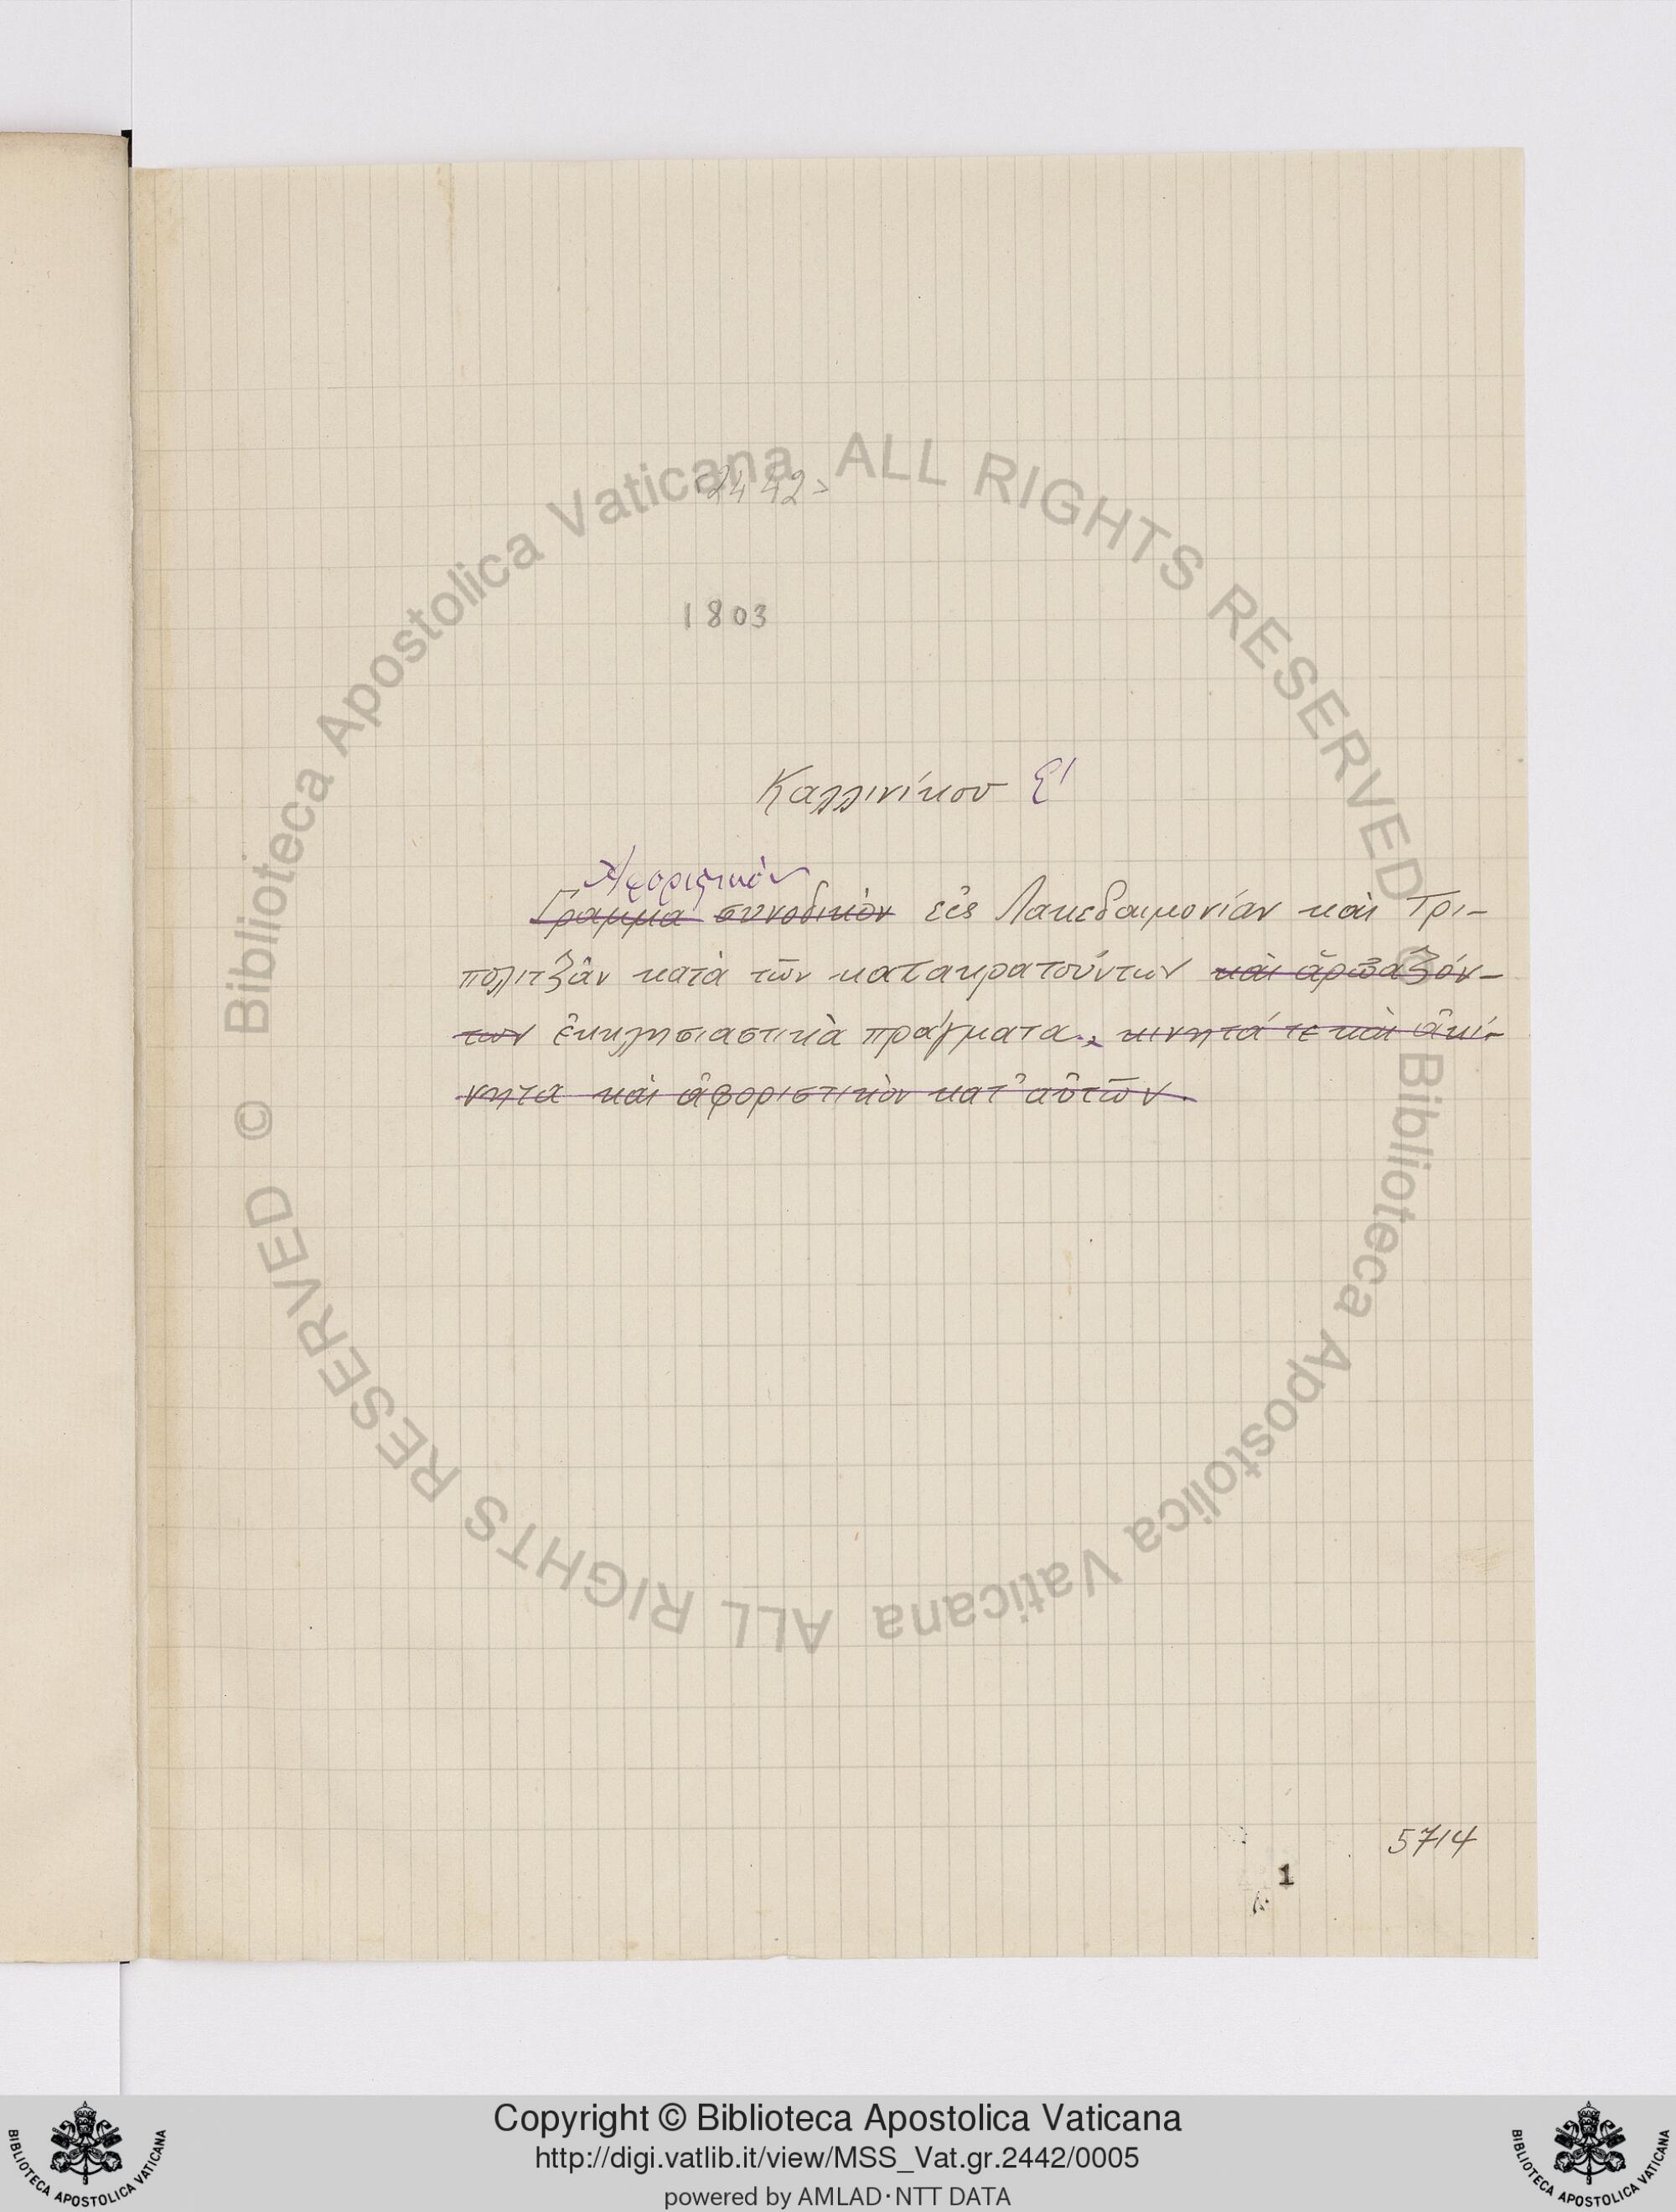 <2442>
1803
Καλλινίκου Ε'
Ἀφοριστικὸν
Γράμμα συνοδικὸν εἰς Λακεδαιμονίαν καὶ Τρι-
πολιτζὰν κατὰ τῶν κατακρατούντων καὶ ἁρπαζόν-
των ἐκκλησιαστικὰ πράγματα., κινητά τε καὶ ἀκί-
νητα καὶ ἀφοριστικὸν κατ' αὐτῶν.
5714
1
© Biblioteca Apostolica Vaticana ALL RIGHTS RESERVED
© Biblioteca Apostolica Vaticana ALL RIGHTS RESERVED
BIBLIOTECA APOSTOLICA VATICANA
Copyright © Biblioteca Apostolica Vaticana
http://digi.vatlib.it/view/MSS_Vat.gr.2442/0005
powered by AMLAD·NTT DATA
BIBLIOTECA APOSTOLICA VATICANA